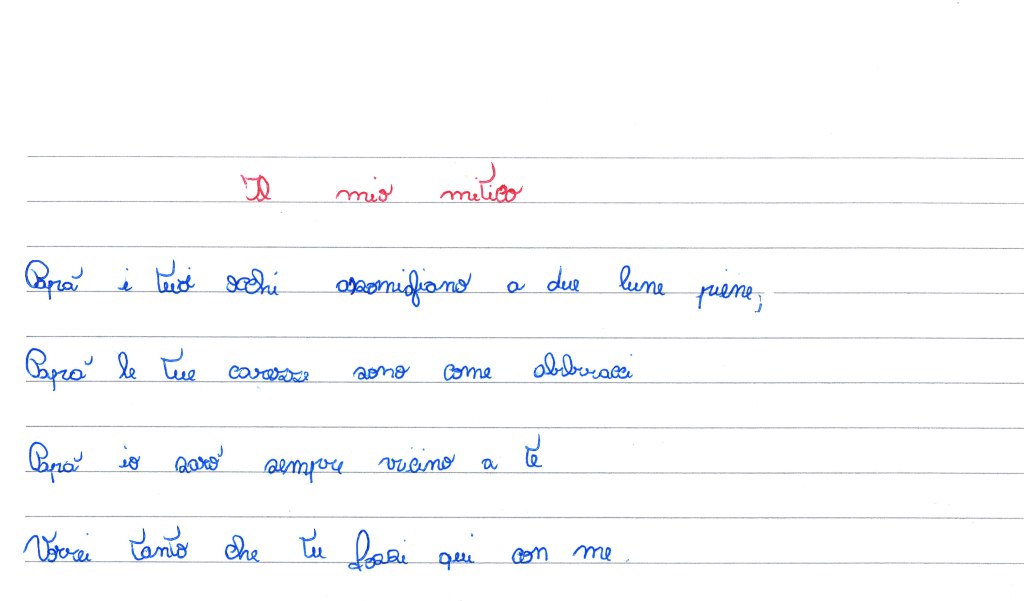 Il mio mitico
Papá i tuoi occhi assomigliano a due lune piene;
Papá le tue carezze sono come abbracci
Papá io saró sempre vicino a te
Vorrei tanto che tu fossi qui con me.